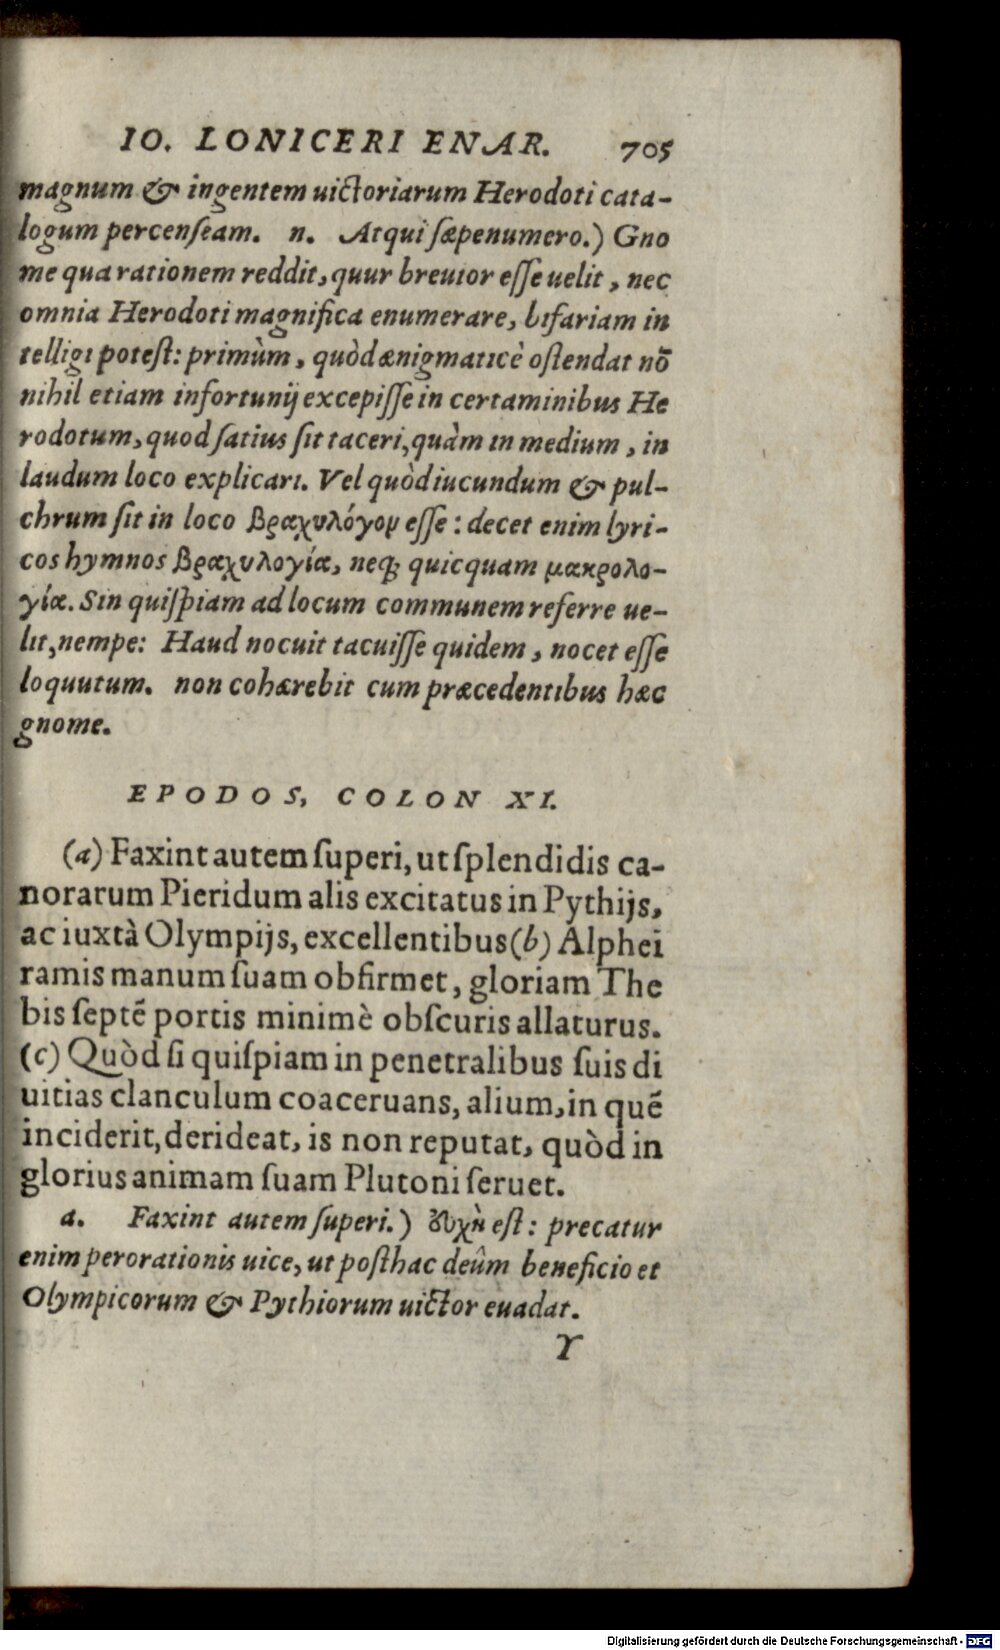 IO. LONICERI ENAR. 705
magnum & ingentem uictoriarum Herodoti cata-
logum percenſeam. n. Atqui ſæpenumero.) Gno
me qua rationem reddit, quur breuior eſſe uelit, nec
omnia Herodoti magnifica enumerare, bifariam in
telligi poteſt: primùm, quòd ænigmaticè oſtendat nõ
nihil etiam infortunij excepiſſe in certaminibus He
rodotum, quod ſatius ſit taceri, quàm in medium, in
laudum loco explicari. Vel quòd iucundum & pul-
chrum ſit in loco βραχυλόγον eſſe: decet enim lyri-
cos hymnos βραχυλογία, neq; quicquam μακρολο-
γία. Sin quiſpiam ad locum communem referre ue-
lit, nempe: Haud nocuit tacuiſſe quidem, nocet eſſe
loquutum. non cohærebit cum præcedentibus hæc
gnome.
EPODOS, COLON XI.
(a) Faxint autem ſuperi, ut ſplendidis ca-
norarum Pieridum alis excitatus in Pythijs,
ac iuxtà Olympijs, excellentibus (b) Alphei
ramis manum ſuam obfirmet, gloriam The
bis ſeptẽ portis minimè obſcuris allaturus.
(c) Quòd ſi quiſpiam in penetralibus ſuis di
uitias clanculum coaceruans, alium, in quẽ
inciderit, derideat, is non reputat, quòd in
glorius animam ſuam Plutoni ſeruet.
a. Faxint autem ſuperi.) ευχὴ eſt: precatur
enim perorationis uice, ut poſthac deûm beneficio et
Olympicorum & Pythiorum uictor euadat.
Y
Digitalisierung gefördert durch die Deutsche Forschungsgemeinschaft - DFG